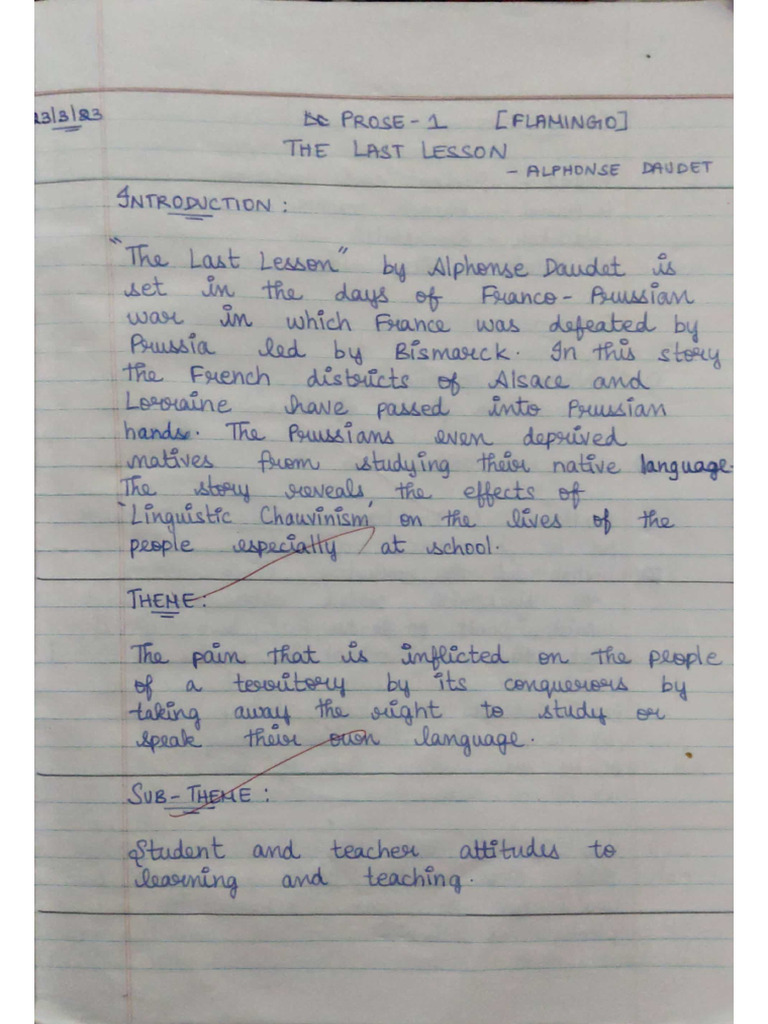 23/3/23
PROSE-1 [FLAMINGO]
THE LAST LESSON
- ALPHONSE DAUDET
INTRODUCTION:
"The Last Lesson" by Alphonse Daudet is
set in the days of Franco-Prussian
war in which France was defeated by
Prussia led by Bismarck. In this story
the French districts of Alsace and
Lorraine have passed into Prussian
hands. The Prussians even deprived
natives from studying their native language.
The story reveals the effects of
'Linguistic Chauvinism' on the lives of the
people especially at school.
THEME:
The pain that is inflicted on the people
of a territory by its conquerors by
taking away the right to study or
speak their own language.
SUB-THEME:
Student and teacher attitudes to
learning and teaching.